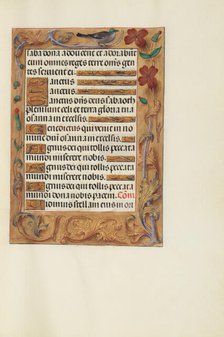 saba dona adducent et adorabūt
eum omnes reges terre om̄s gen
tes servient ei.
Sanctus
Sanctus
Sanctus dn̄s deus sabaoth
pleni sunt celi et terra gloria tua
osanna in excelsis.
Benedictus qui venit in no
mine domini osanna in excelsis.
Agnus dei qui tollis peccata
mundi miserere nobis.
Agnus dei qui tollis peccata
mundi miserere nobis.
Agnus dei qui tollis peccata
mundi dona nobis pacem. Com̄
Vidimus stellam eius in ori